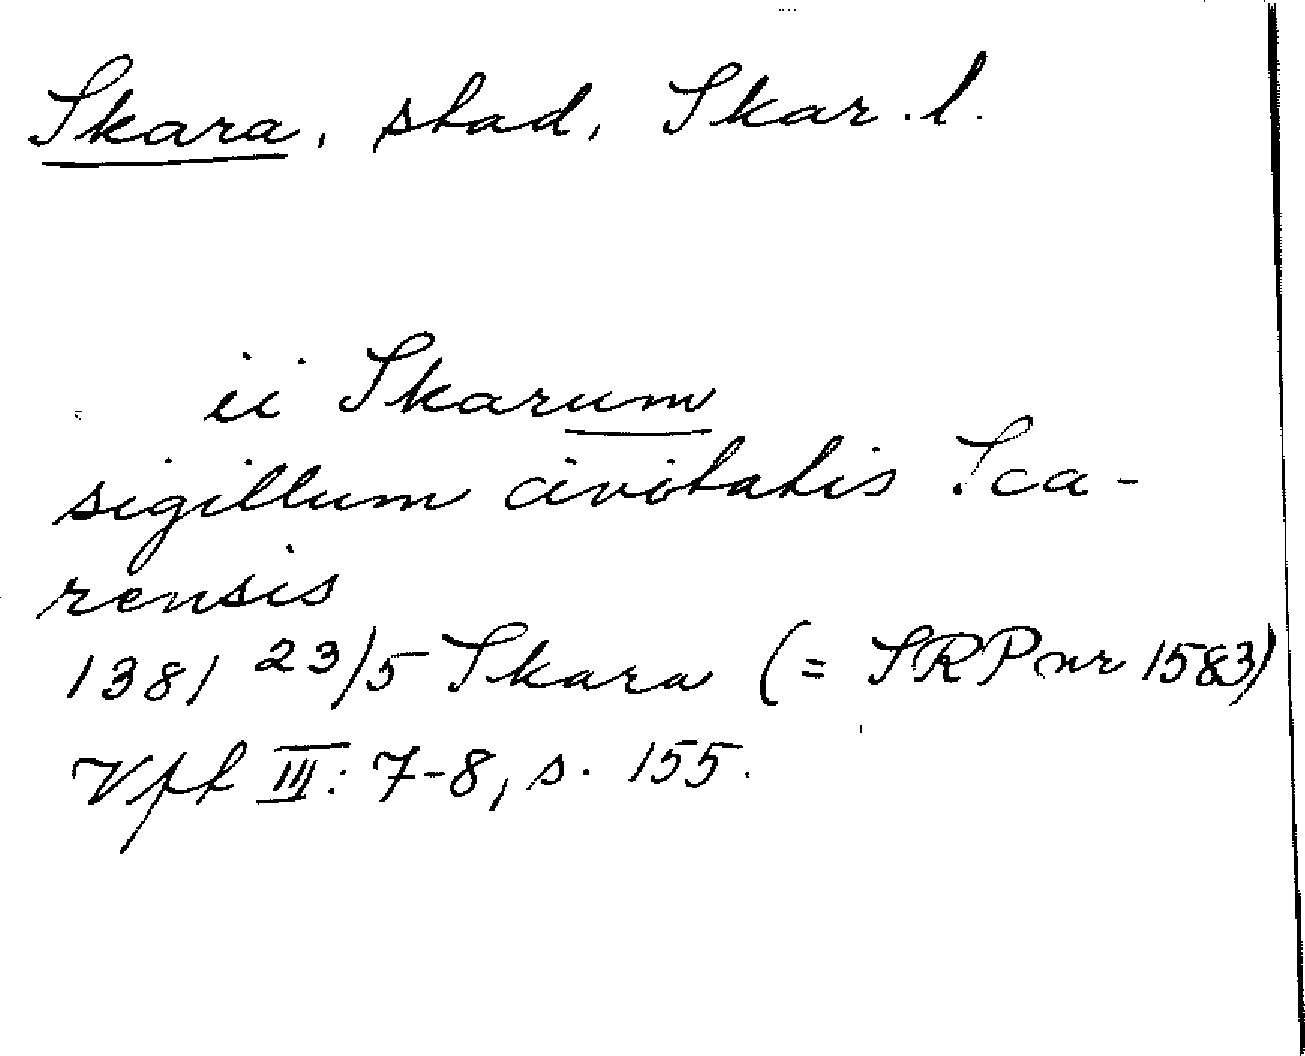 Skara, stad, Skar. l.
ii Skarum
sigillum civitatis Sca-
rensis
1381 23/5 Skara (= SRP nr 1583)
Vft III: 7-8, s. 155.